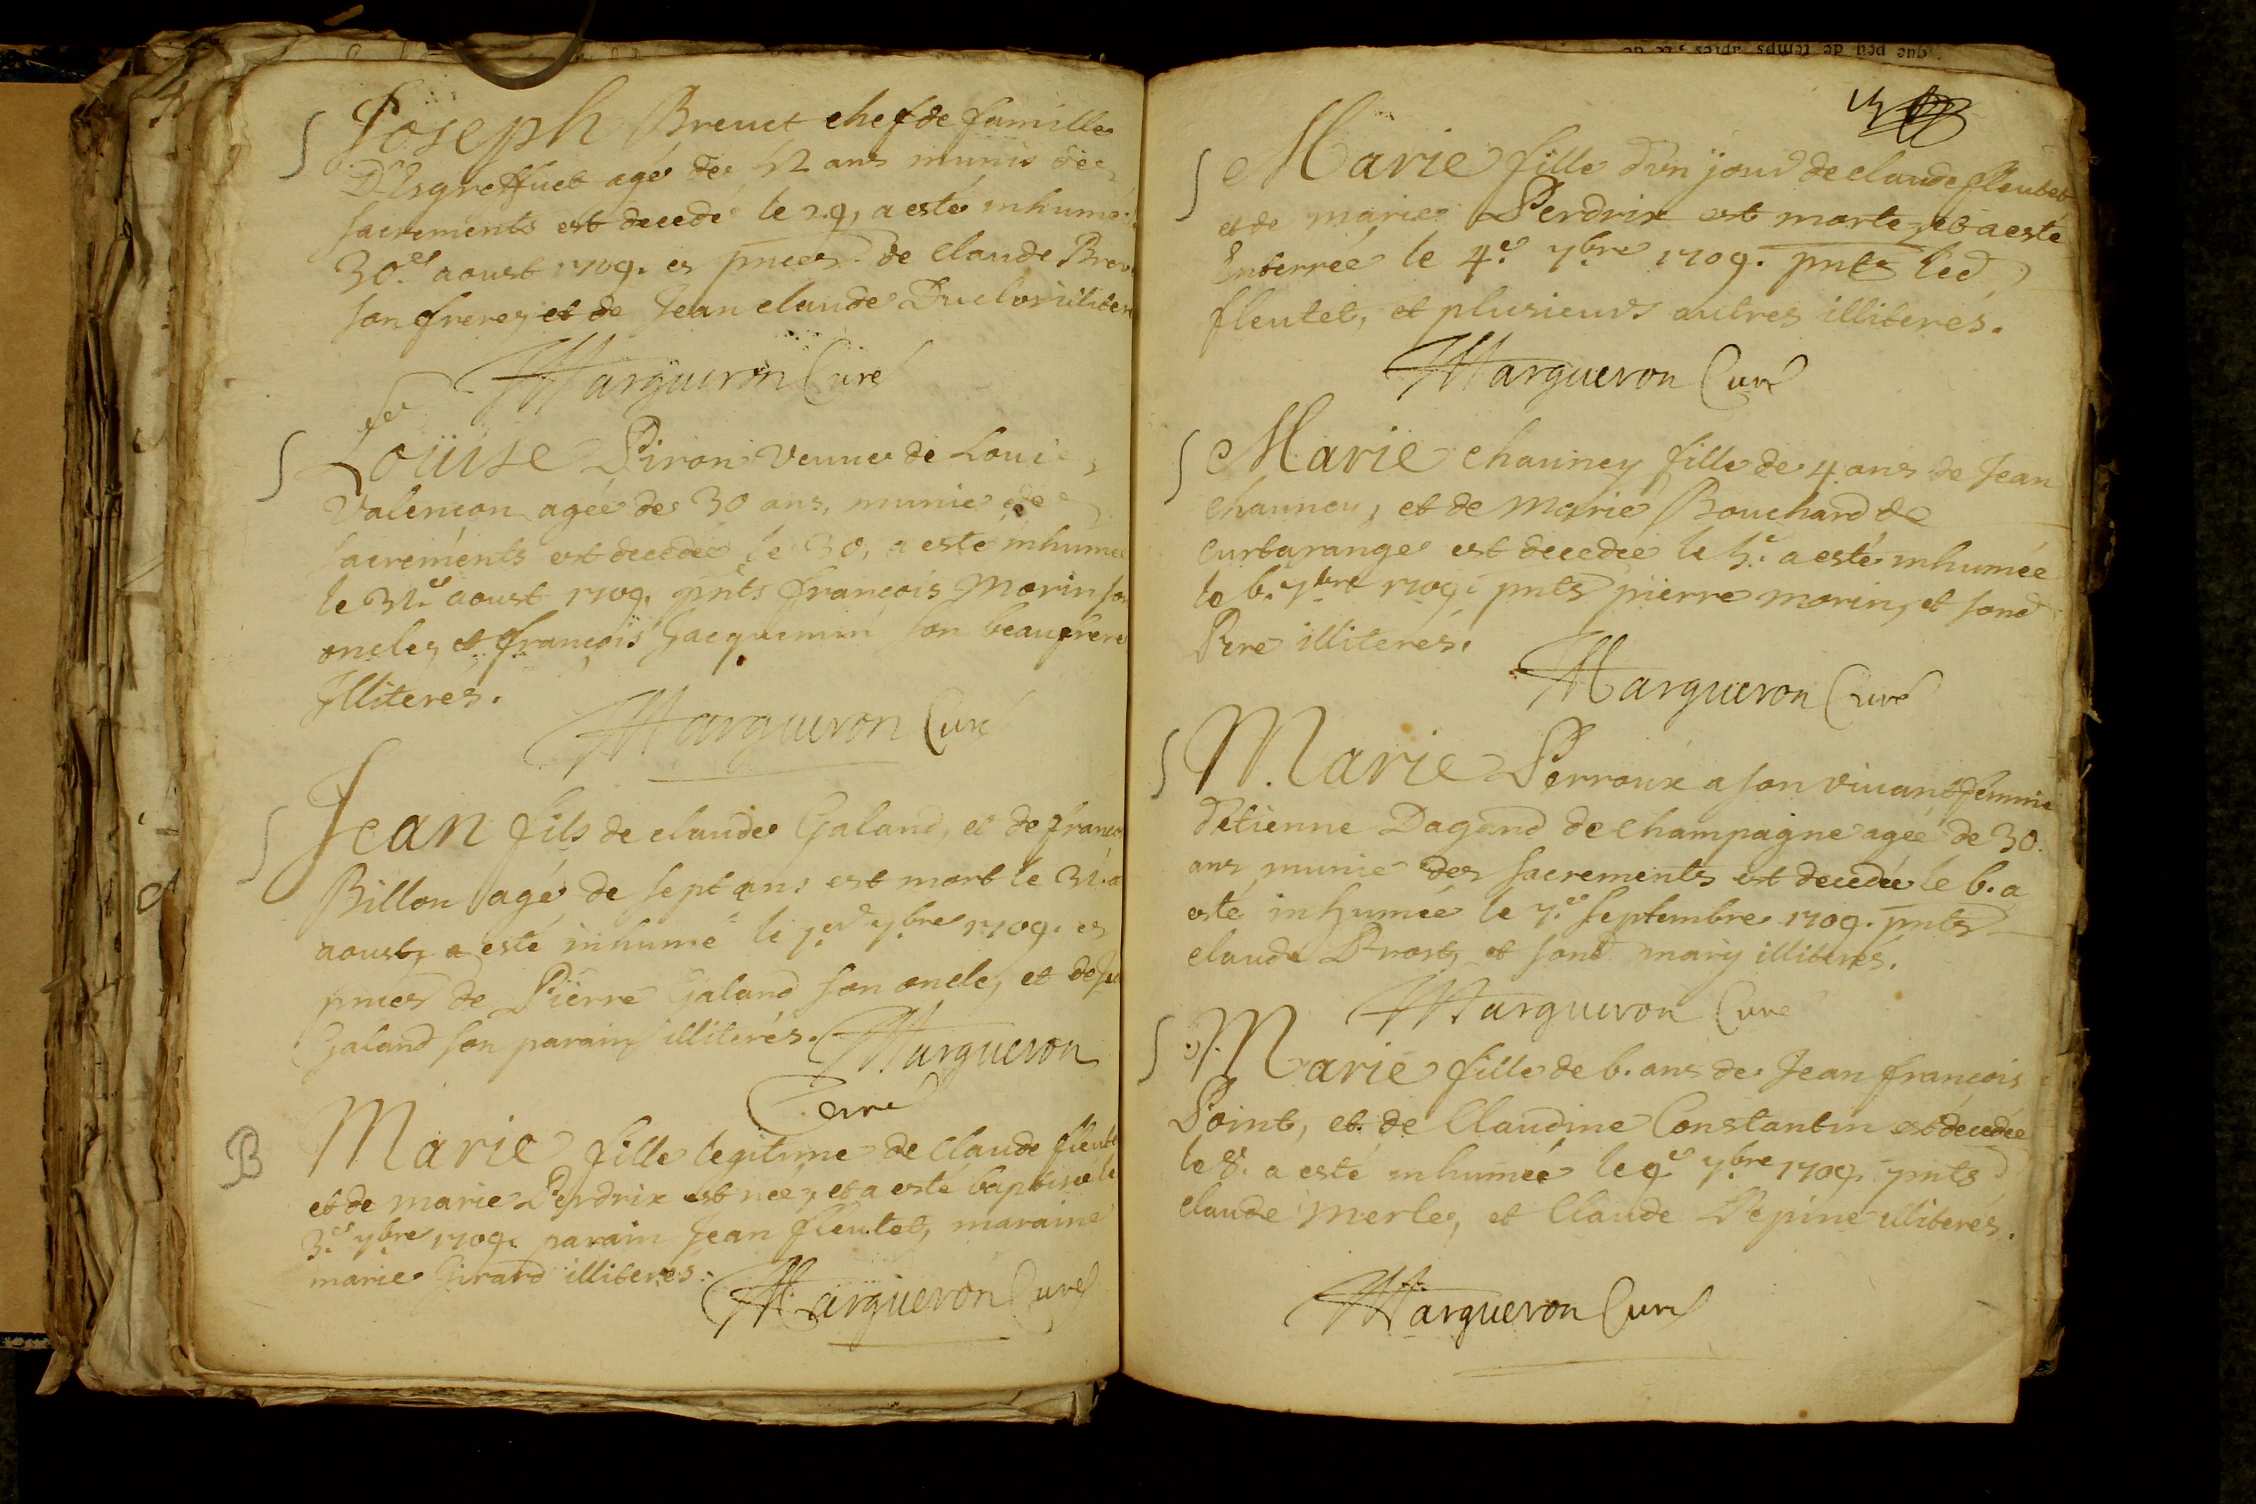 Joseph Breuet chef de famille
D'Esgreffuet agé de 52 ans munis des
sacrements est decedé le 29, a esté inhumé
30.e aoust 1709. es pnces de Claude Breu
son frere, et de Jean claude Duclos illiter
Margueron Curé
Loüise Piron veuue de Louis
Valencon agée de 30 ans, munie des
sacrements est decedée le 30, a esté inhumée
le 31.e aoust 1709. pnts françois Morin son
oncle, et françois Jacquemin son beaufrere
Illiteres.
Margueron Curé
Jean fils de claude Galand, et de franço
Billon agé de sept ans est mort le 31.
aoust, a esté inhumé le 1.er 7bre 1709. es
pnces de Pierre Galand son oncle, et de
Galand son parain illiterés. Margueron
Curé
B
Marie fille legitime de Claude fleutet
et de marie Perdrix est née, et a esté baptisée le
3.e 7bre 1709. parain Jean fleutet, maraine
marie Girard illiterés.
Margueron Curé
que peu de temps apres, & de
Marie fille d'un jour de claude fleutet
et de marie Perdrix est morte, et a esté
Enterrée le 4.e 7bre 1709. pnts led
fleutet, et plusieurs autres illiterés.
Margueron Curé
Marie chauney fille de 4 ans de Jean
chauney, et de Marie Bouchard de
curtarange est decedée le 5.e a esté inhumée
le 6. 7bre 1709. pnts pierre morin, et sond
Pere illiterés.
Margueron Curé
Marie Perroux a son viuant femme
d'etienne Dagand de champagne agée de 30.
ans munie des sacrements est decedée le 6. a
esté inhumée le 7.e septembre 1709. pnts
claude Prost, et sond mary illiterés.
Margueron Curé
Marie fille de 6. ans de Jean françois
Point, et de Claudine Constantin est decedée
le 8. a esté inhumée le 9.e 7bre 1709. pnts
claude Merle, et Claude Pepine illiterés.
Margueron Curé